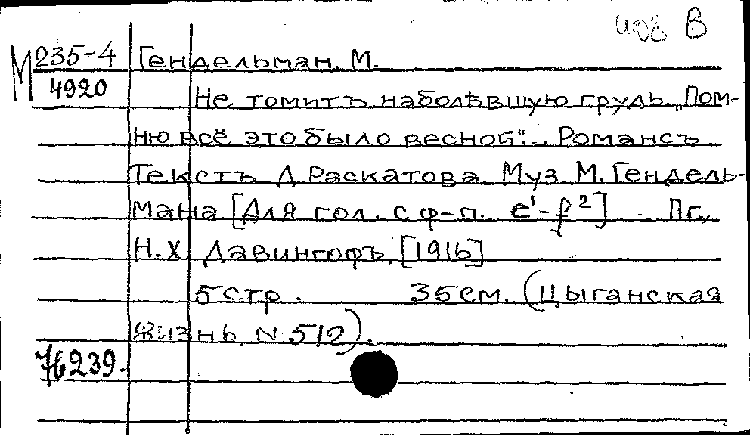 В
М 235-4 Гендельман, М.
4920
Не томитъ наболѣвшую грудь „Пом-
ню всё это было весной“. Романсъ
Текстъ Л. Раскатова Муз. М. Гендель-
мана [Для гол. с ф-п. e¹-f²] Пг.,
Н. Х. Давингофъ, [1916]
5 стр. 35 см. (Цыганская
жизнь. N 512).
76239.